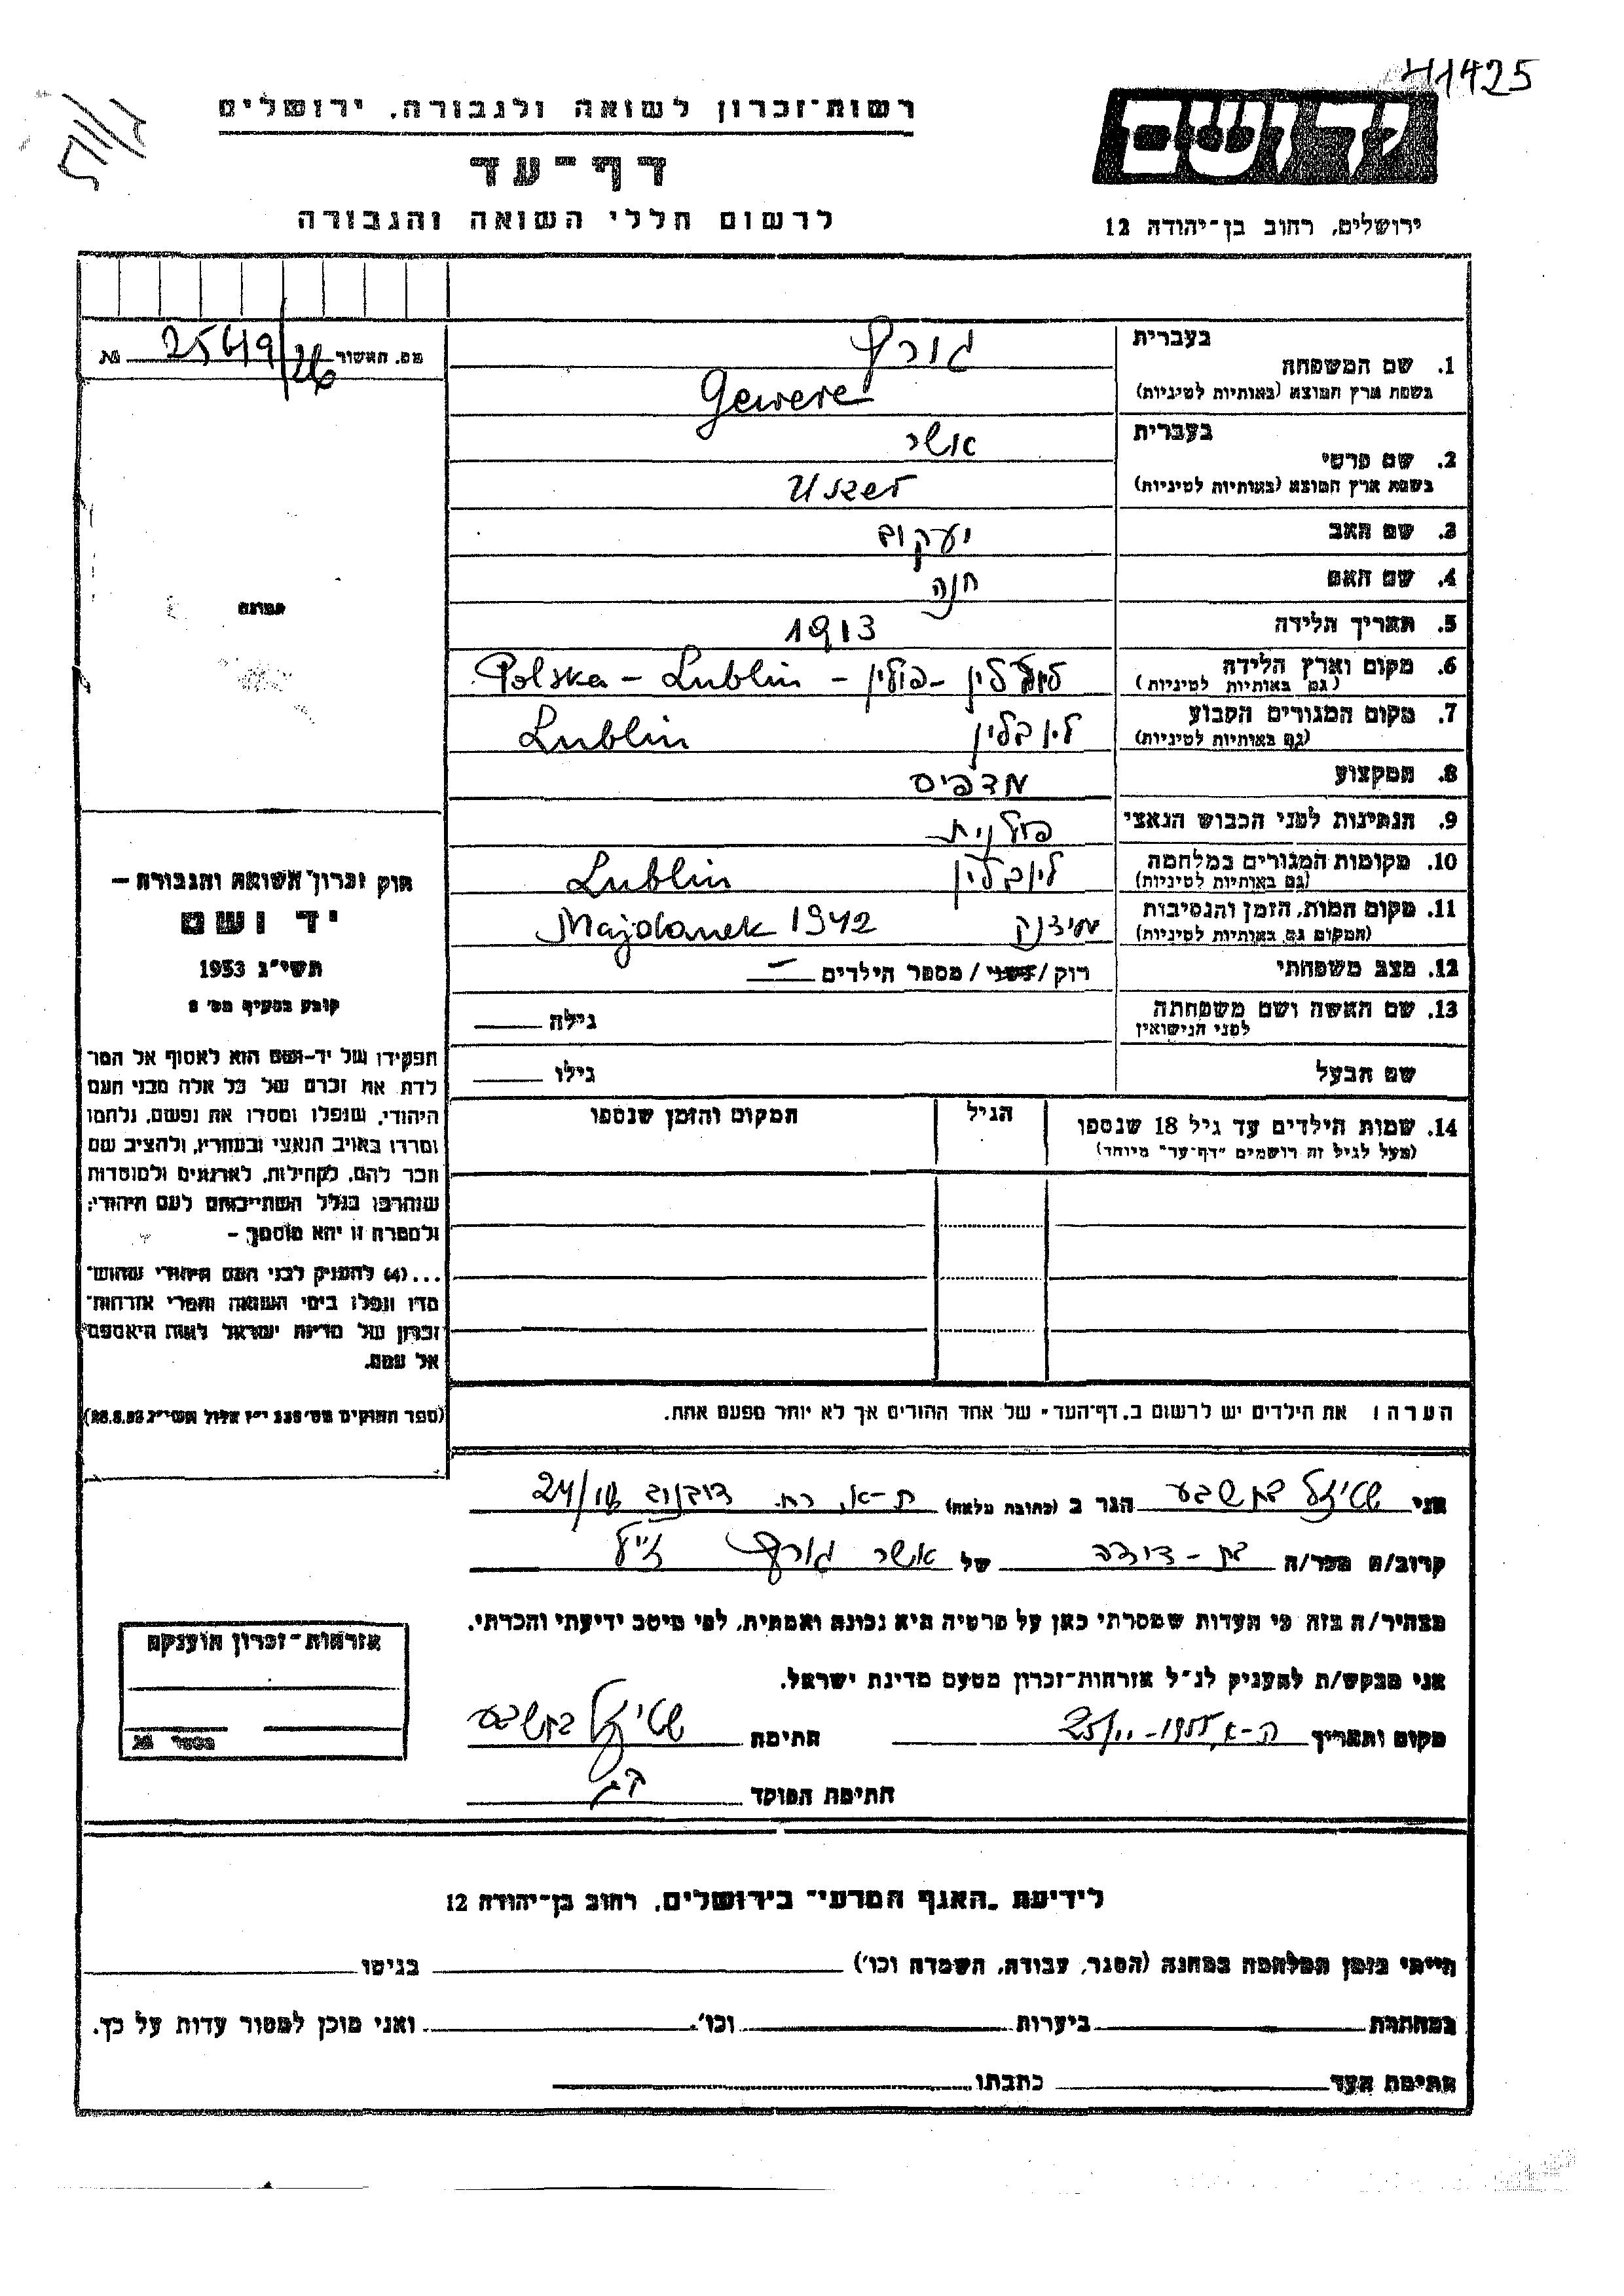 41425
רשות-זכרון לשואה ולגבורה, ירושלים
דף-עד
לרשום חללי השואה והגבורה
יד ושם
ירושלים, רחוב בן-יהודה 12
מס. האשור 2549/26
בעברית
1. שם המשפחה
(בשפת ארץ המוצא (באותיות לטיניות
Gewere
בעברית אשר
2. שם פרטי
(בשפת ארץ המוצא (באותיות לטיניות
Uszer
3. שם האב יעקוב
4. שם האם חנה
תמונה
5. תאריך הלידה 1913
6. מקום וארץ הלידה לובלין - פולין - Polska - Lublin
(גם באותיות לטיניות)
7. מקום המגורים הקבוע לובלין Lublin
(גם באותיות לטיניות)
8. המקצוע מדפיס
9. הנתינות לפני הכבוש הנאצי פולנית
10. מקומות המגורים במלחמה לובלין Lublin
(גם באותיות לטיניות)
11. מקום המות, הזמן והנסיבות מידנק Majdanek 1942
(המקום גם באותיות לטיניות)
12. מצב משפחתי רוק/נשוי/ מספר הילדים —
13. שם האשה ושם משפחתה גילה
לפני הנישואין
שם הבעל גילו
14. שמות הילדים עד גיל 18 שנספו הגיל המקום והזמן שנספו
(מעל לגיל זה רושמים "דף-עד" מיוחד)
חוק זכרון השואה והגבורה —
יד ושם
תשי"ג 1953
קובע בסעיף מס'
תפקידו של יד-ושם הוא לאסוף אל המו־
לדת את זכרם של כל אלה מבני העם
היהודי, שנפלו ומסרו את נפשם, נלחמו
ומרדו באויב הנאצי ובעוזריו, ולהציב שם
וזכר להם, לקהילות, לארגונים ולמוסדות
שנחרבו בגלל השתייכותם לעם היהודי;
ולמטרה זו יהא מוסמך —
...(4) להעניק לבני העם היהודי שהוש־
מדו ונפלו בימי השואה והמרי אזרחות־
זכרון של מדינת ישראל לאות היאספם
אל עמם.
(ספר החוקים מס' 132 י"ז אלול תשי"ג 28.8.53)
הערה: את הילדים יש לרשום ב"דף-העד" של אחד ההורים אך לא יותר מפעם אחת.
אני בת שבע הגר ב (כתובת מלאה) ת-א, רח. דובנוב 24/
קרוב/ה מכר/ה בת-דודה של אשר ז"ל
מצהיר/ה בזה כי העדות שמסרתי כאן על פרטיה היא נכונה ואמתית, לפי מיטב ידיעתי והכרתי.
אני מבקש/ת להעניק לנ"ל אזרחות-זכרון מטעם מדינת ישראל.
מקום ותאריך 25/11-1955 חתימה בת שבע
חתימת הפוקד
אזרחות-זכרון הוענקה
מספר
לידיעת "האגף המדעי" בירושלים, רחוב בן-יהודה 12
הייתי בזמן המלחמה במחנה (הסגר, עבודה, השמדה וכו') בגיטו
במחתרת ביערות וכו'. ואני מוכן למסור עדות על כך.
חתימת העד כתבתו